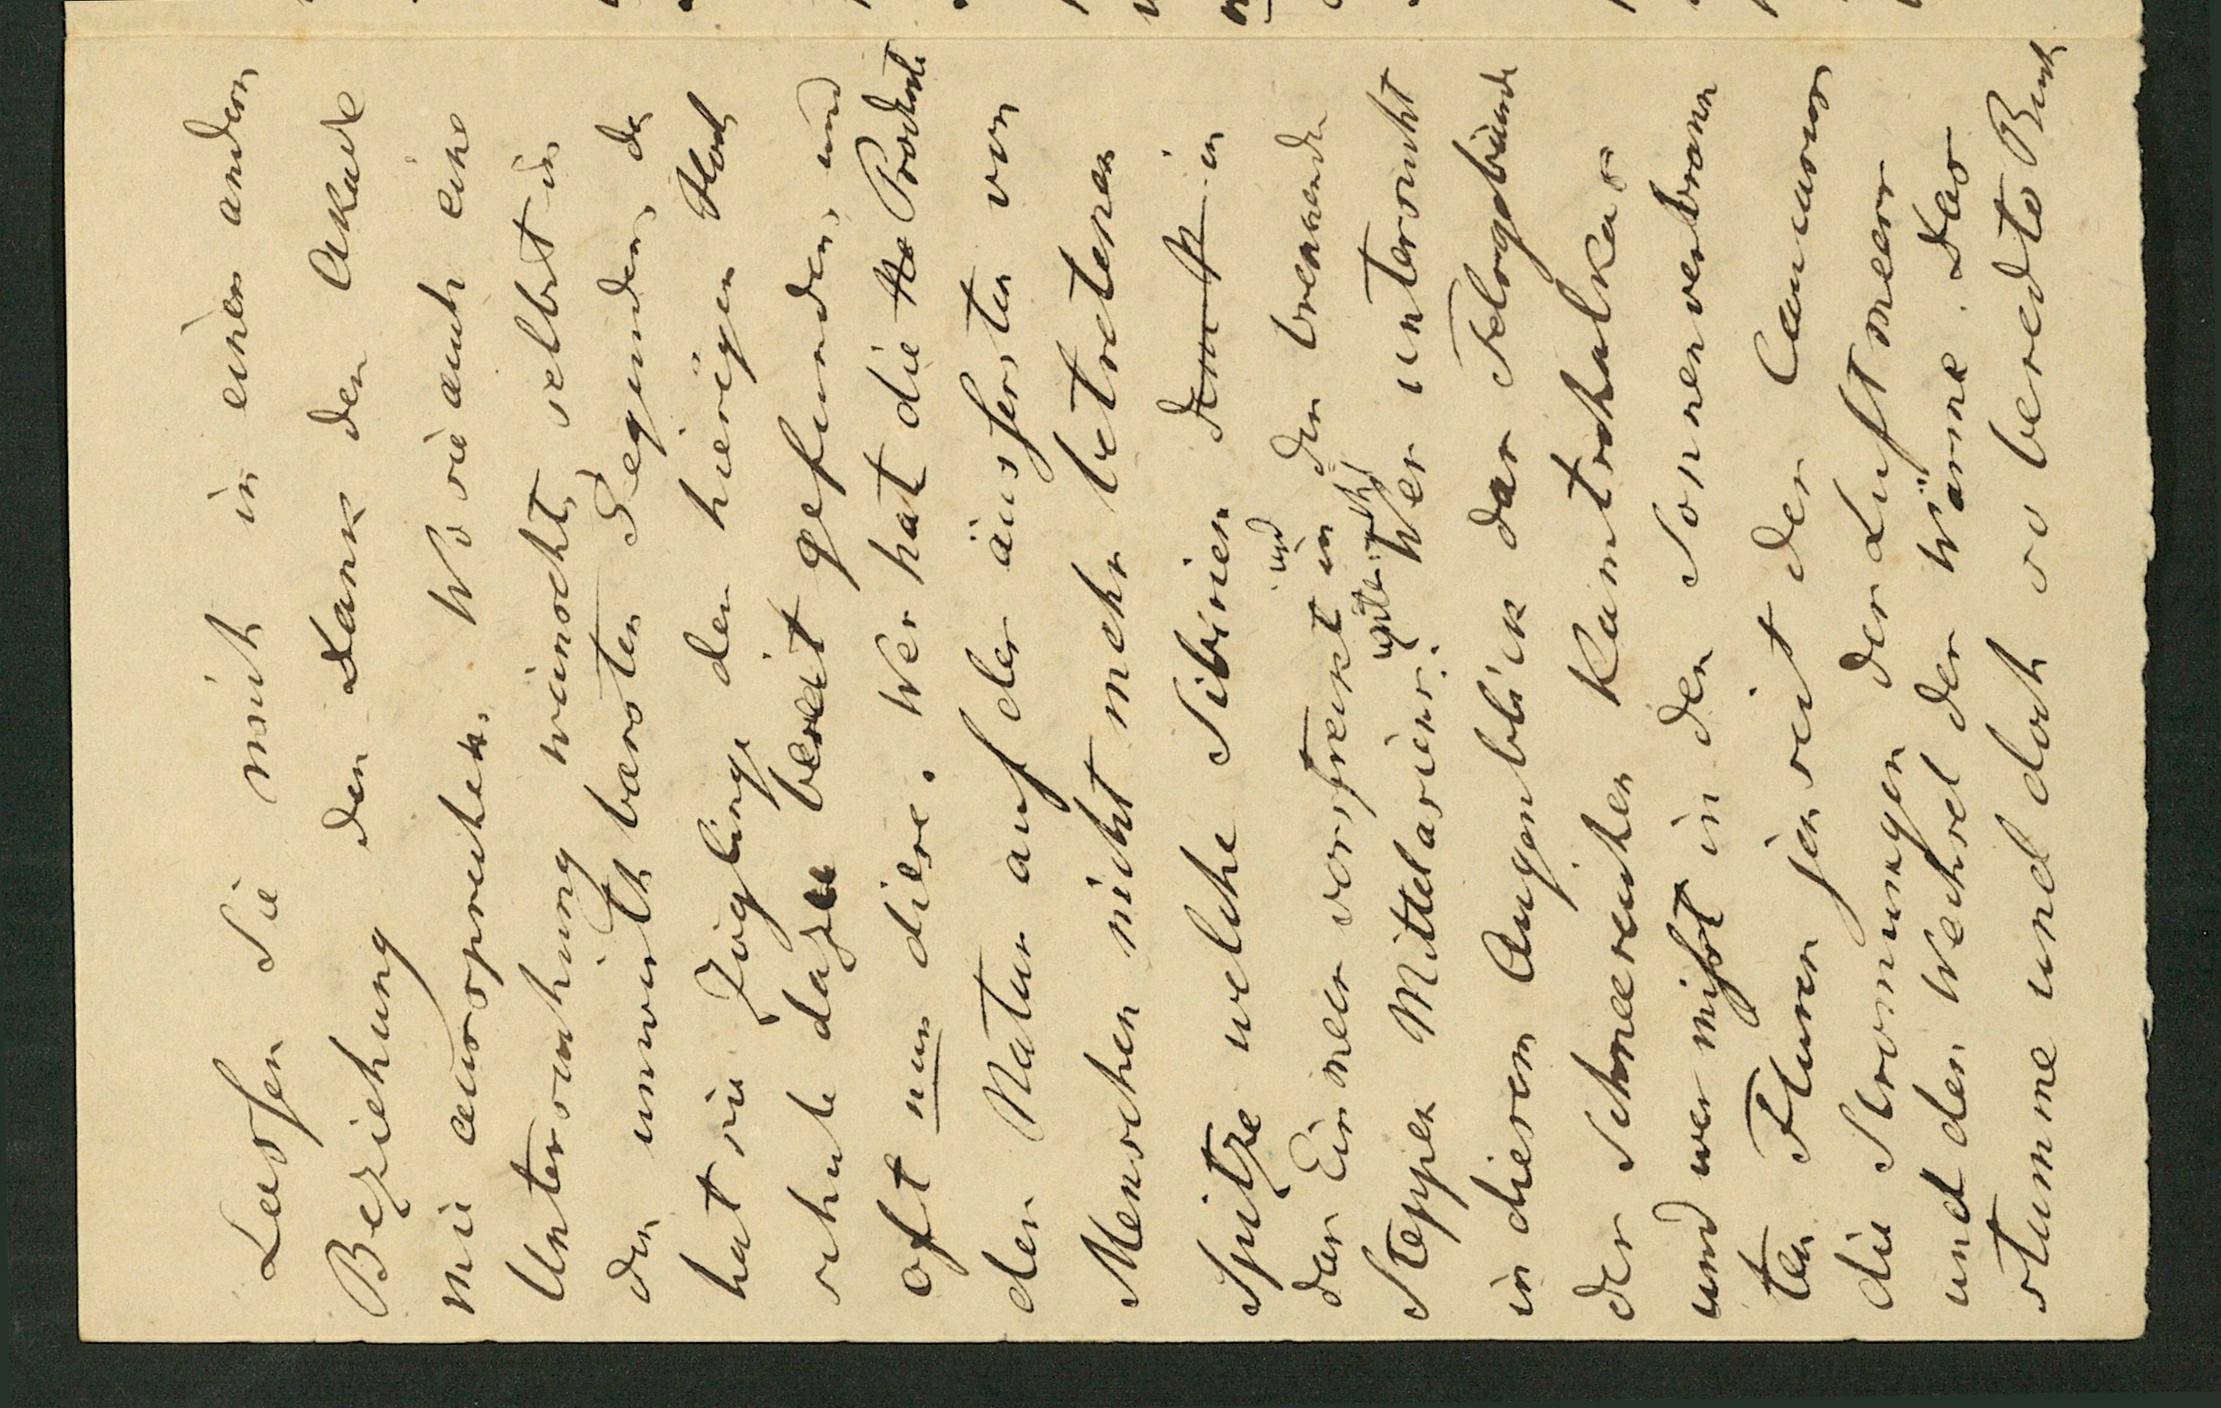 Lassen Sie mich in einer andern
Beziehung den Dank der Akade
mie aussprechen. Wo sie auch eine
Untersuchung wünscht, selbst in
den unwirthbarsten Gegenden, da
hat sie Jünglinge der hiesigen Hoch
schule dazu bereit gefunden, und
oft nur diese. Wer hat die Producte
der Natur auf der äussersten von
Menschen nicht mehr betretenen
Spitze welche Sibirien in
das Eismeer vorstreckt und in den brennenden
Steppen Mittelasiens untersucht? Wer untersucht
in diesem Augenblick das Felsgebäude
der Schneereichen Kamtschatkas
und wer mißt in den Sonnenverbrann
ten Fluren jenseit des Caucasus
die Stromungen des Luftmeers
und den Wechsel der Wärme. Das
stumme und doch so beredte Buch